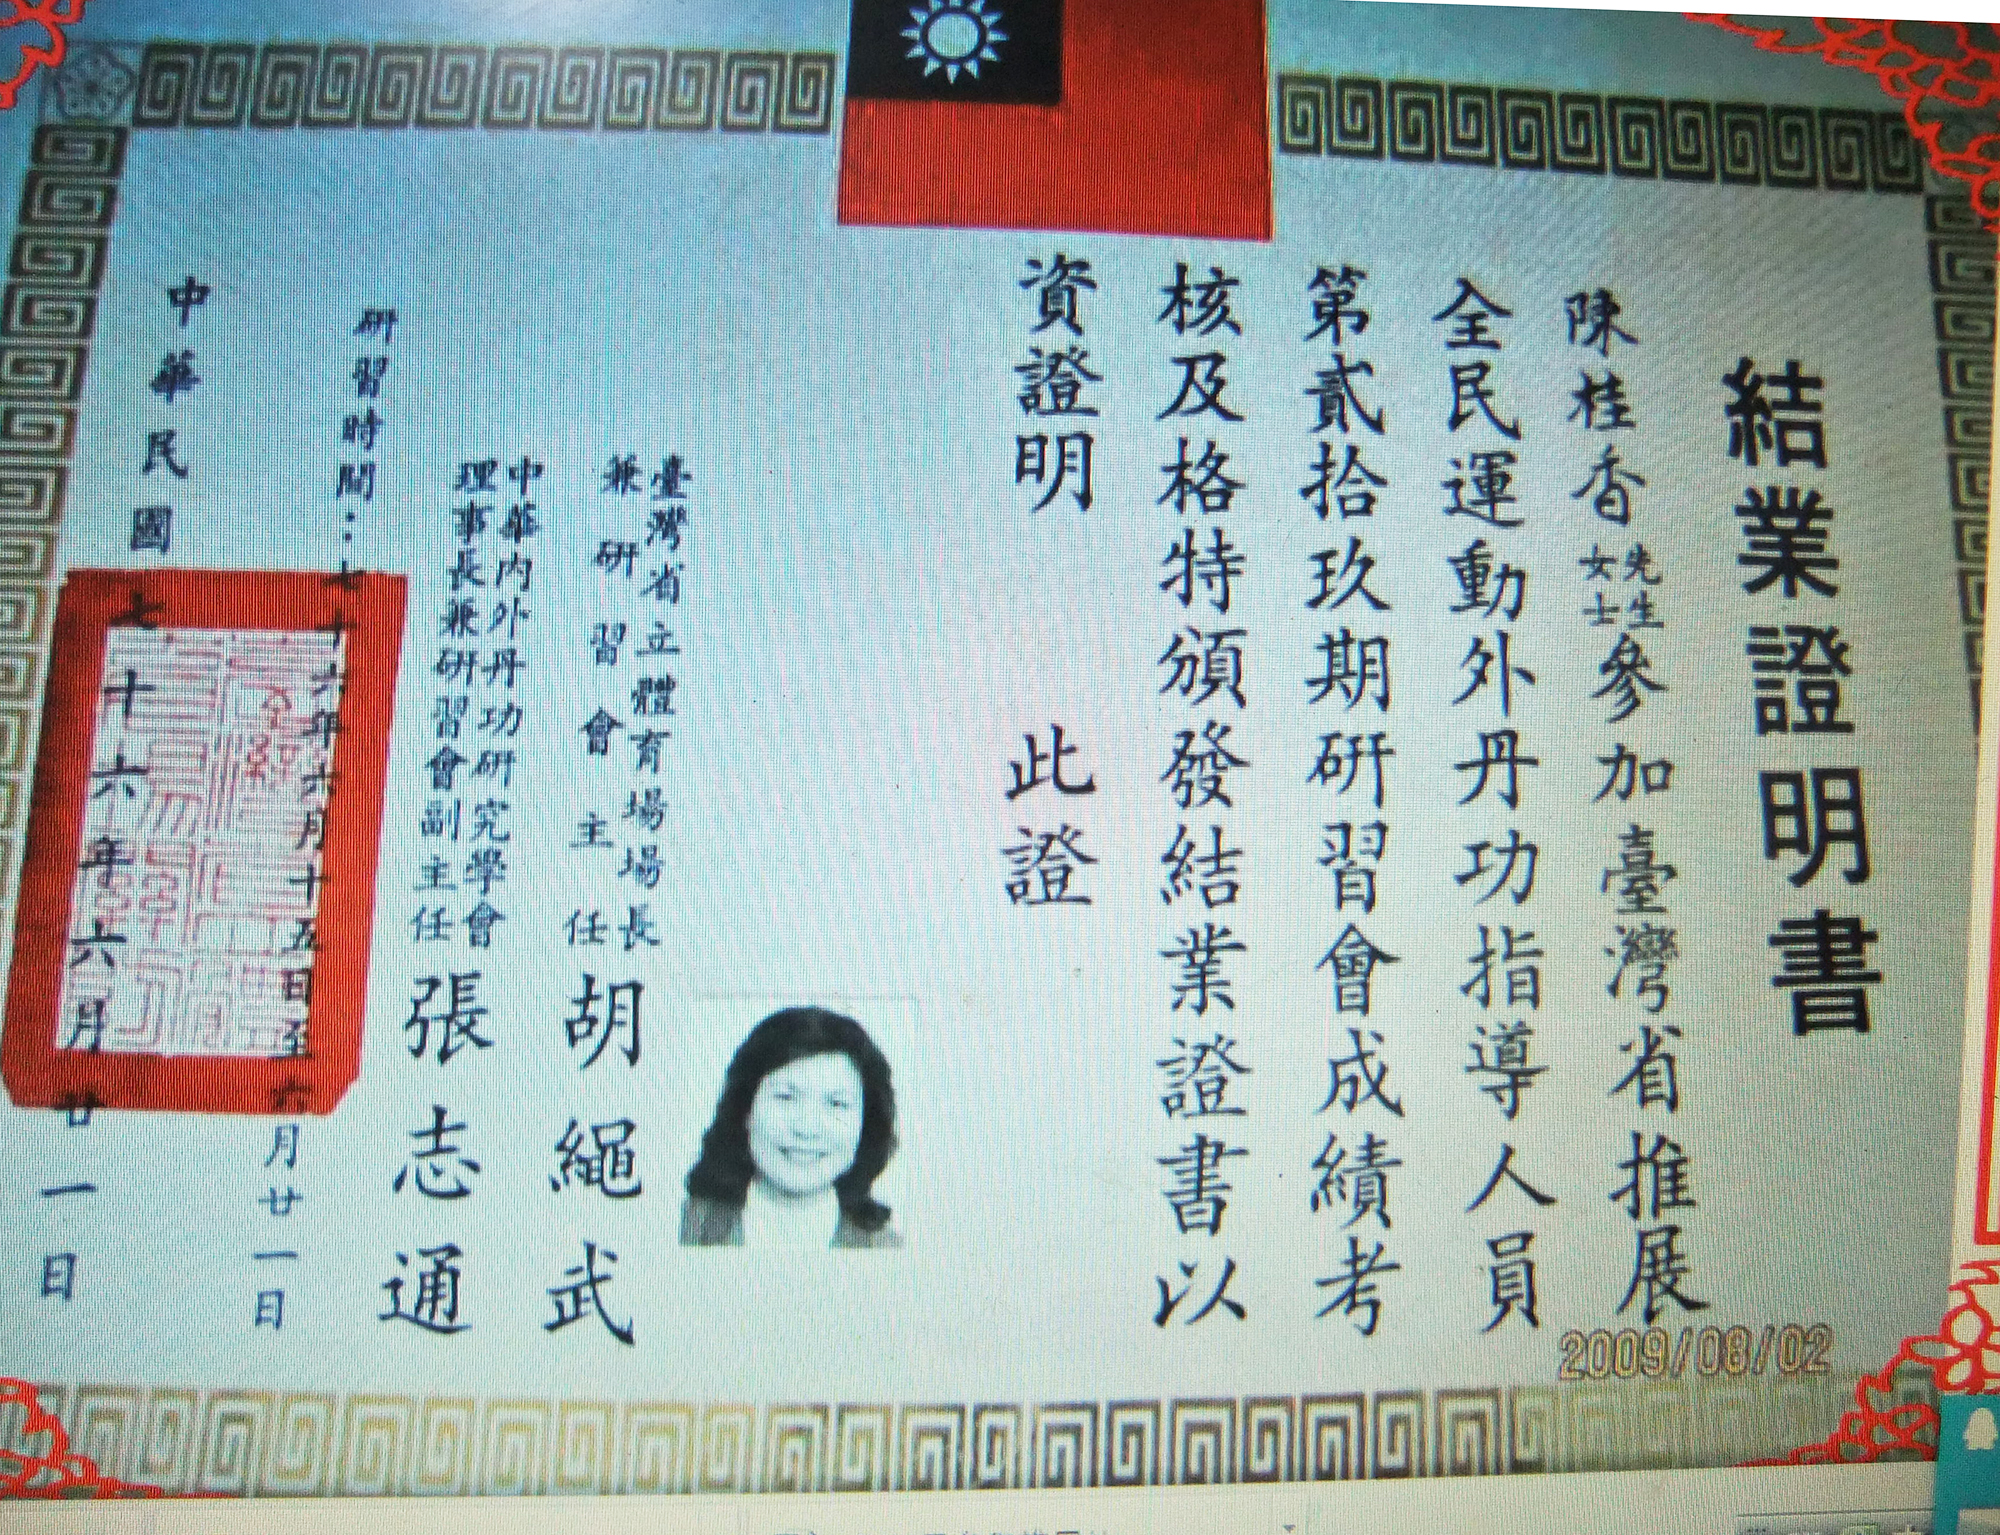 結業證明書
陳桂香先生女士參加臺灣省推展
全民運動外丹功指導人員
第貳拾玖期研習會成績考
核及格特頒發結業證書以
資證明 此證
臺灣省立體育場場長
兼研習會主任 胡繩武
中華內外丹功研究學會
理事長兼研習會副主任 張志通
研習時間：七十六年六月十五日至六月廿一日
中華民國七十六年六月廿一日
2009/08/02